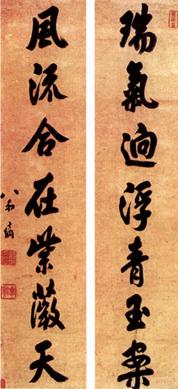 瑞氣迥浮青玉案
風流合在紫薇天